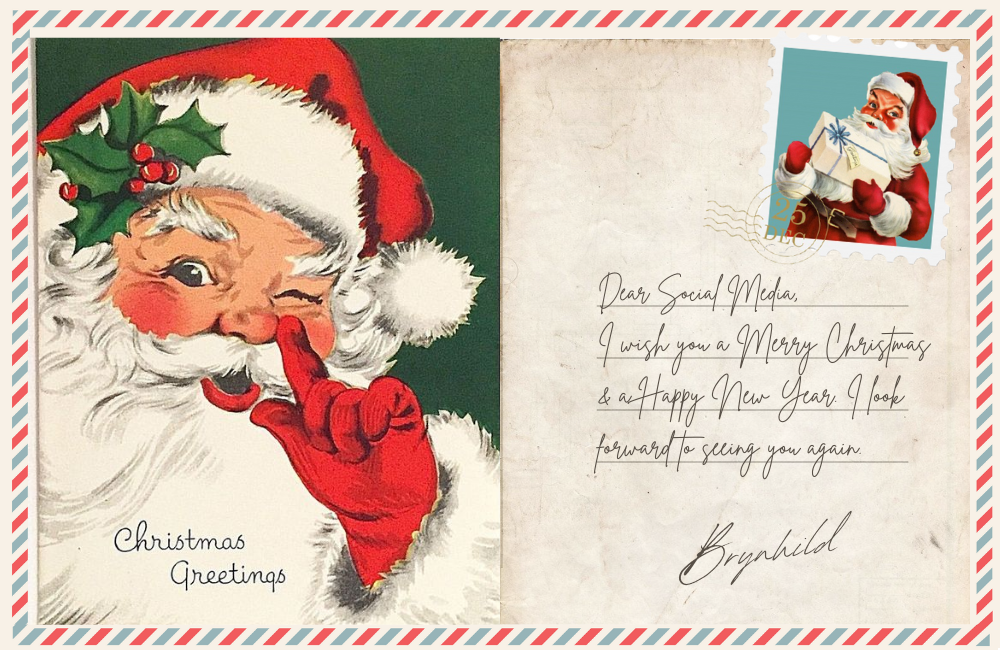 Christmas
Greetings
25
DEC
Dear Social Media,
I wish you a Merry Christmas
& a Happy New Year. I look
forward to seeing you again.
Brynhild